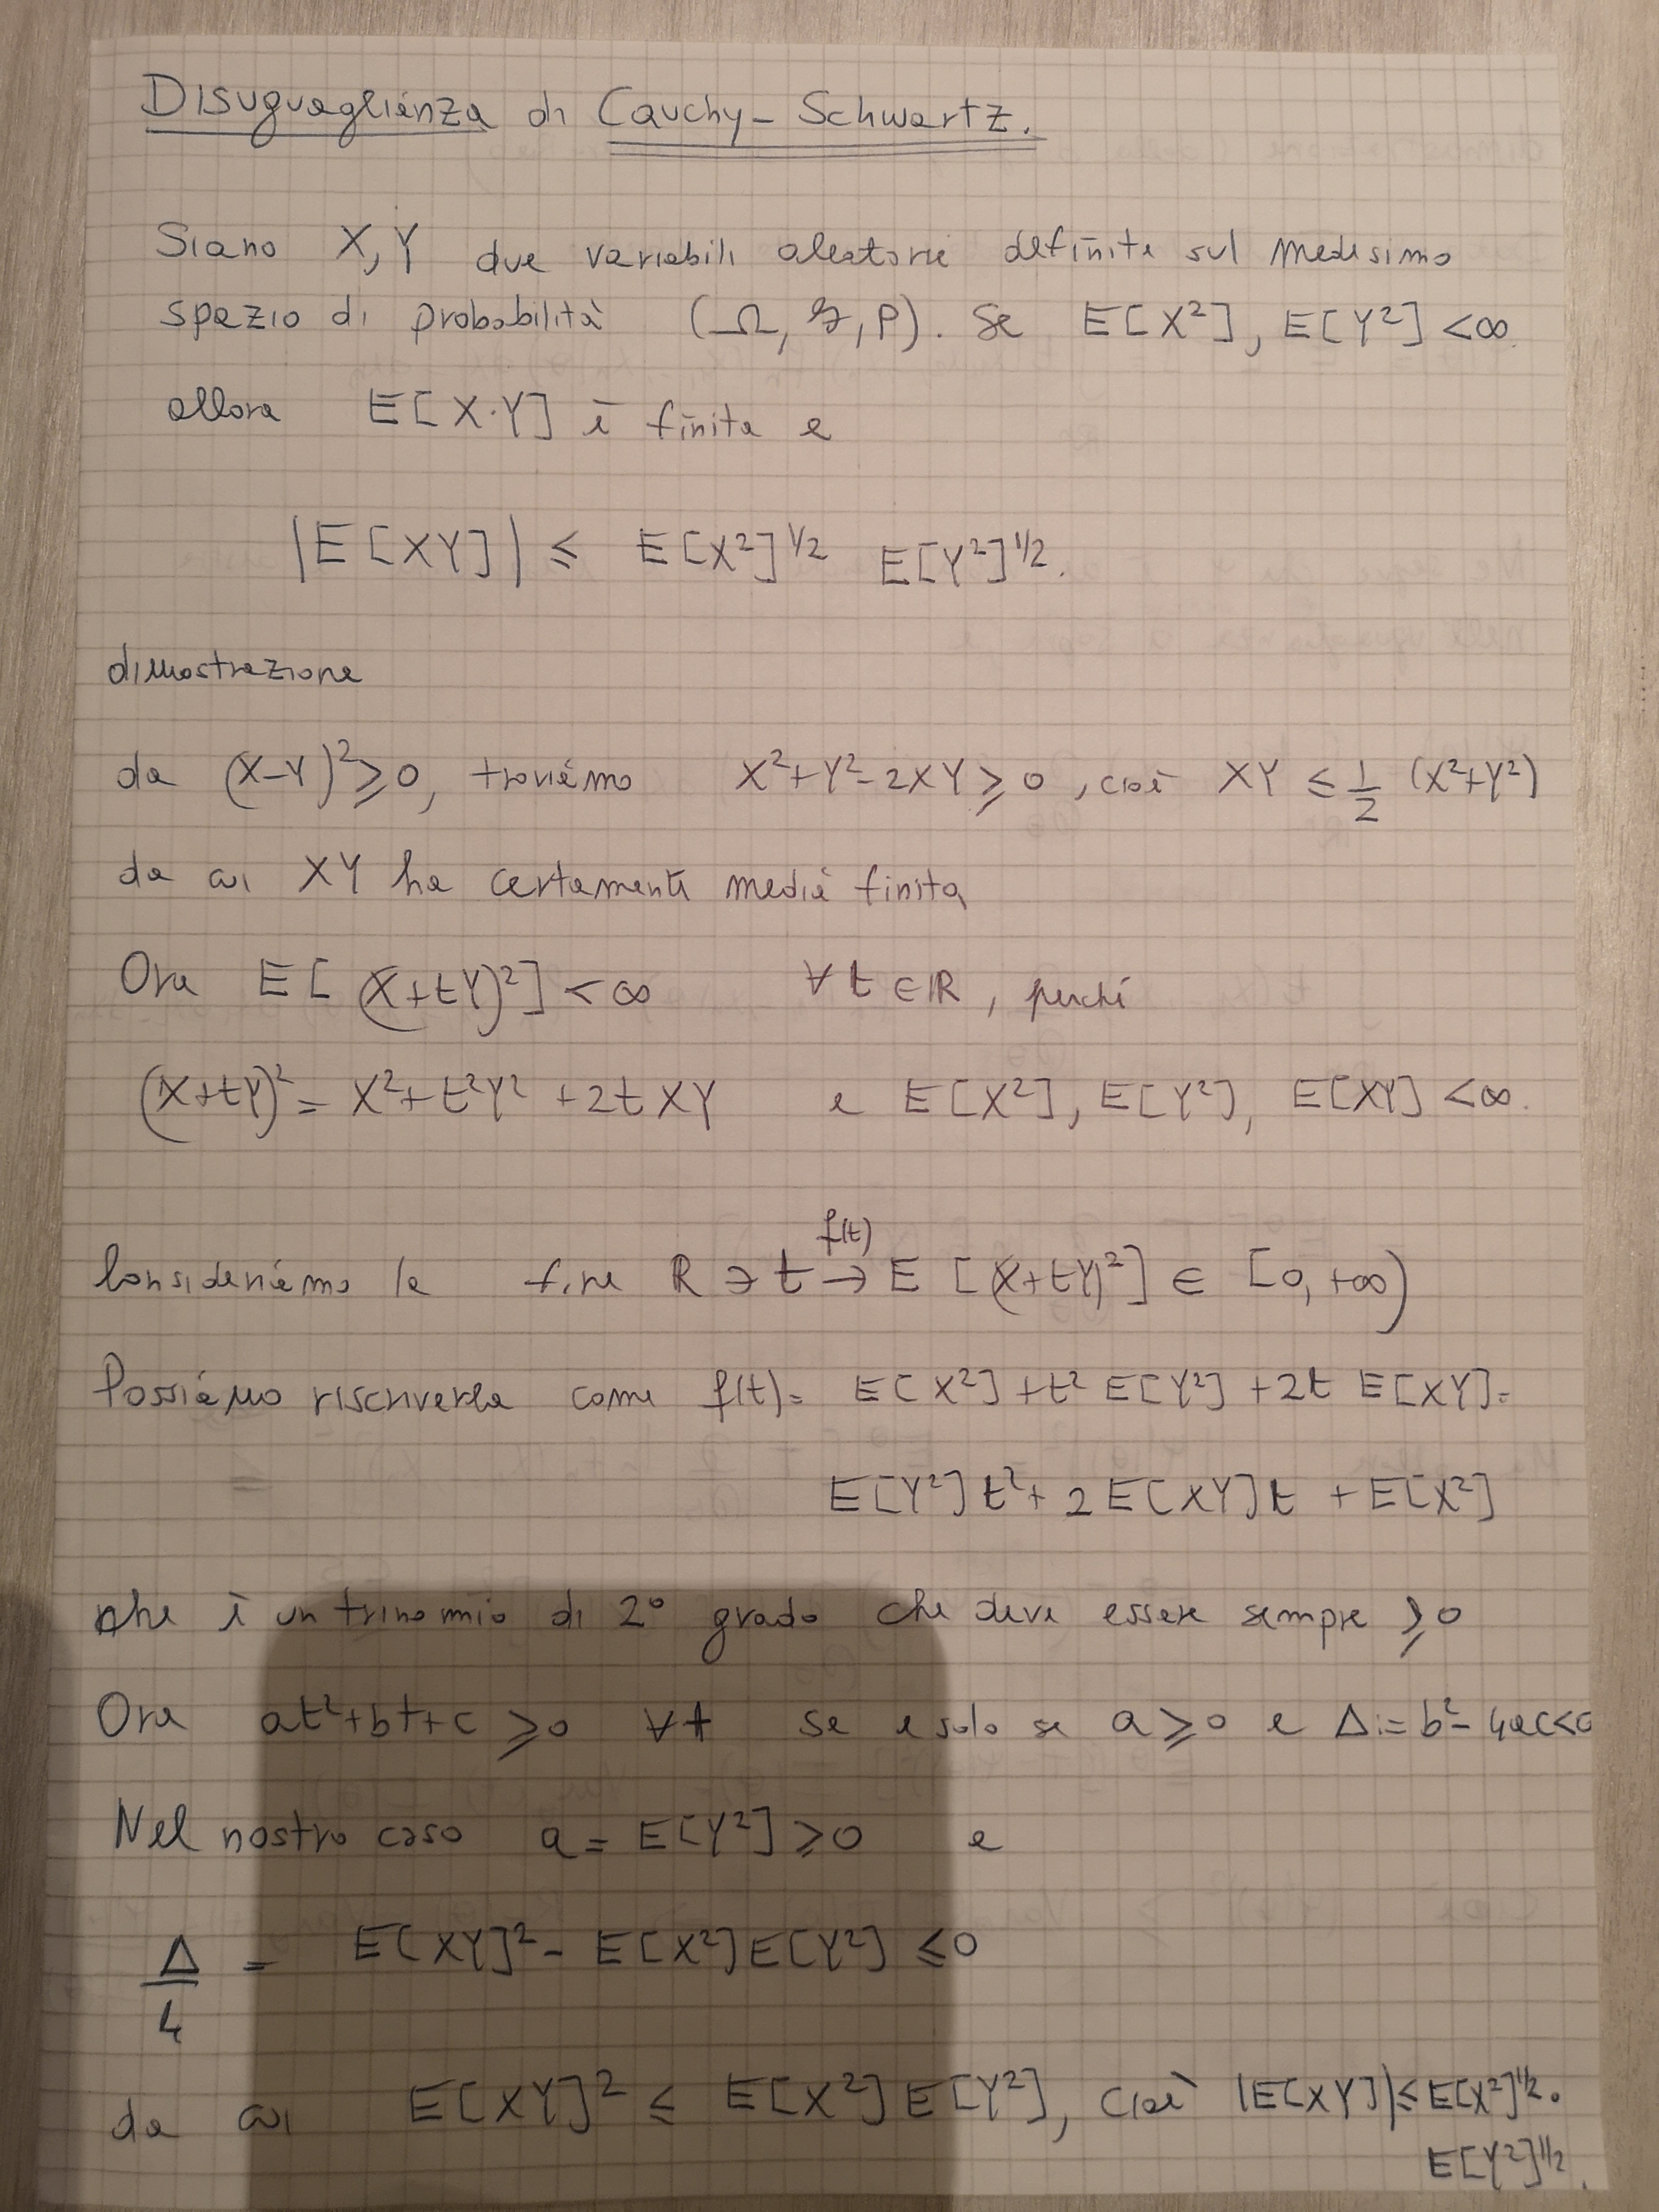 Disuguaglianza di Cauchy-Schwartz.
Siano X, Y due variabili aleatorie definite sul medesimo
spazio di probabilità (Ω, F, P). Se E[X²], E[Y²] < ∞
allora E[X·Y] è finita e
|E[XY]| ≤ E[X²]^1/2 E[Y²]^1/2.
dimostrazione
da (X-Y)² ≥ 0, troviamo X²+Y²-2XY ≥ 0, cioè XY ≤ 1/2 (X²+Y²)
da cui XY ha certamente media finita
Ora E[(X+tY)²] < ∞ ∀ t ∈ R, perché
(X+tY)² = X²+t²Y²+2tXY e E[X²], E[Y²], E[XY] < ∞.
f(t)
Consideriamo la f.ne R ∋ t → E[(X+tY)²] ∈ [0, +∞)
Possiamo riscriverla come f(t) = E[X²]+t² E[Y²]+2t E[XY] =
E[Y²]t²+2E[XY]t+E[X²]
che è un trinomio di 2° grado che deve essere sempre ≥ 0
Ora at²+bt+c ≥ 0 ∀t se e solo se a ≥ 0 e Δ := b²-4ac<0
Nel nostro caso a = E[Y²] ≥ 0 e
Δ/4 = E[XY]² - E[X²]E[Y²] ≤ 0
da cui E[XY]² ≤ E[X²]E[Y²], cioè |E[XY]| ≤ E[X²]^1/2 ·
E[Y²]^1/2.